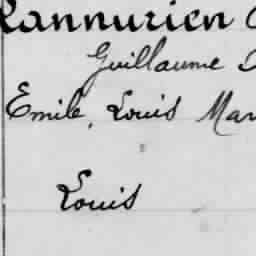 Lannurien
Guillaume
Emile, Louis Mar
Louis